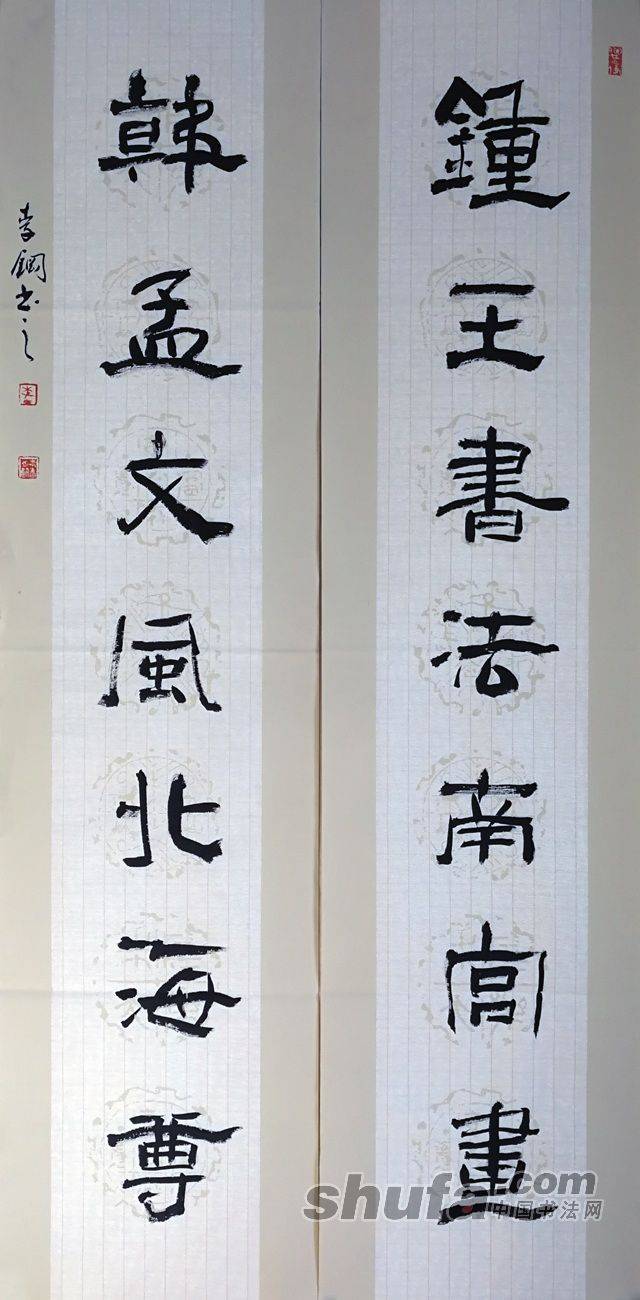 鐘王書法南宮畫
韓孟文風北海尊
李鋼书之
shufa.com
中国书法网